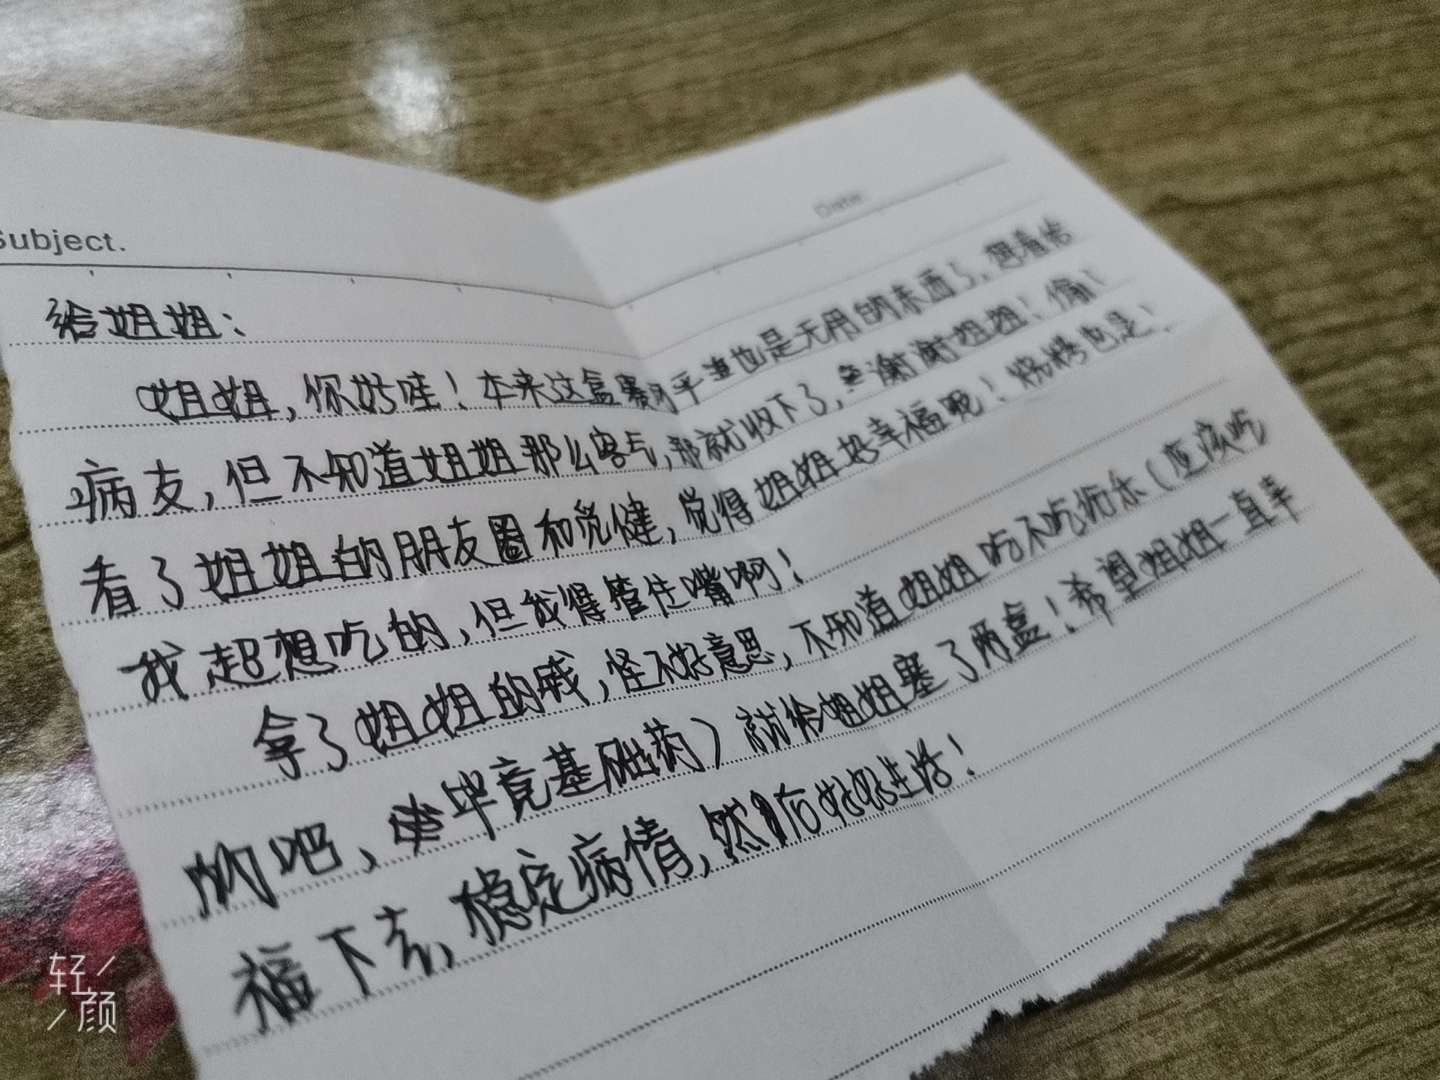 Subject.
Date:
给姐姐：
姐姐，你好哇！本来这盒赛可平连也是无用的东西了，想着给
病友，但不知道姐姐那么客气，那就收下了，谢谢姐姐！偷偷
看了姐姐的朋友圈和，觉得姐姐好幸福哦！烧烤也是！
我超想吃的，但我得管住嘴啊！
拿了姐姐的，怪不好意思，不知道姐姐吃不吃（应该吃
的吧，毕竟基础药）就给姐姐塞了两盒！希望姐姐一直幸
福下去，稳定病情，然后好好生活！
轻颜